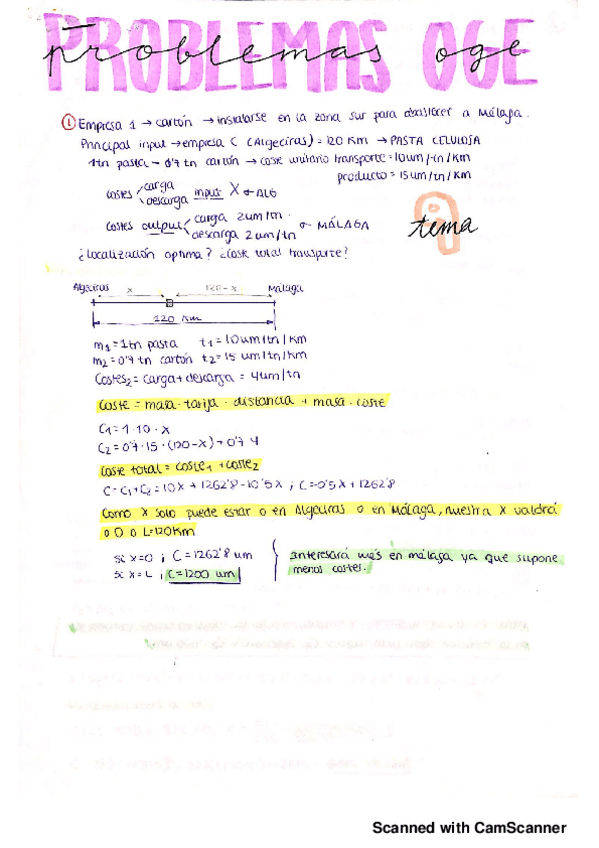 PROBLEMAS OGE
problemas oge
① Empresa 1 → cartón → instalarse en la zona sur para abastecer a Málaga.
Principal input → empresa C (Algeciras) = 120 Km → PASTA CELULOSA
1tn pasta - 0'7 tn cartón → coste unitario transporte = 10um/tn/Km
producto = 15um/tn/Km
costes carga descarga input X → ALG
costes output carga 2um/tn. descarga 2um/tn → MÁLAGA
tema 9
¿localización optima? ¿coste total transporte?
Algeciras x 120-x Málaga
120 Km
m1 = 1tn pasta t1 = 10um/tn/Km
m2 = 0'7 tn cartón t2 = 15 um/tn/Km
Costes2 = carga + descarga = 4um/tn
Coste = masa · tarifa · distancia + masa · coste
C1 = 1·10·x
C2 = 0'7·15·(120-x)+0'7·4
Coste total = coste1 + coste2
C = C1+C2 = 10x + 1262'8 - 10'5x ; C = -0'5x + 1262'8
Como x solo puede estar o en Algeciras o en Málaga, nuestra x valdrá
o 0 o L=120Km
si x=0 ; C = 1262'8 um
si x=L ; C = 1200 um
Interesará más en málaga ya que supone
menos costes.
Scanned with CamScanner